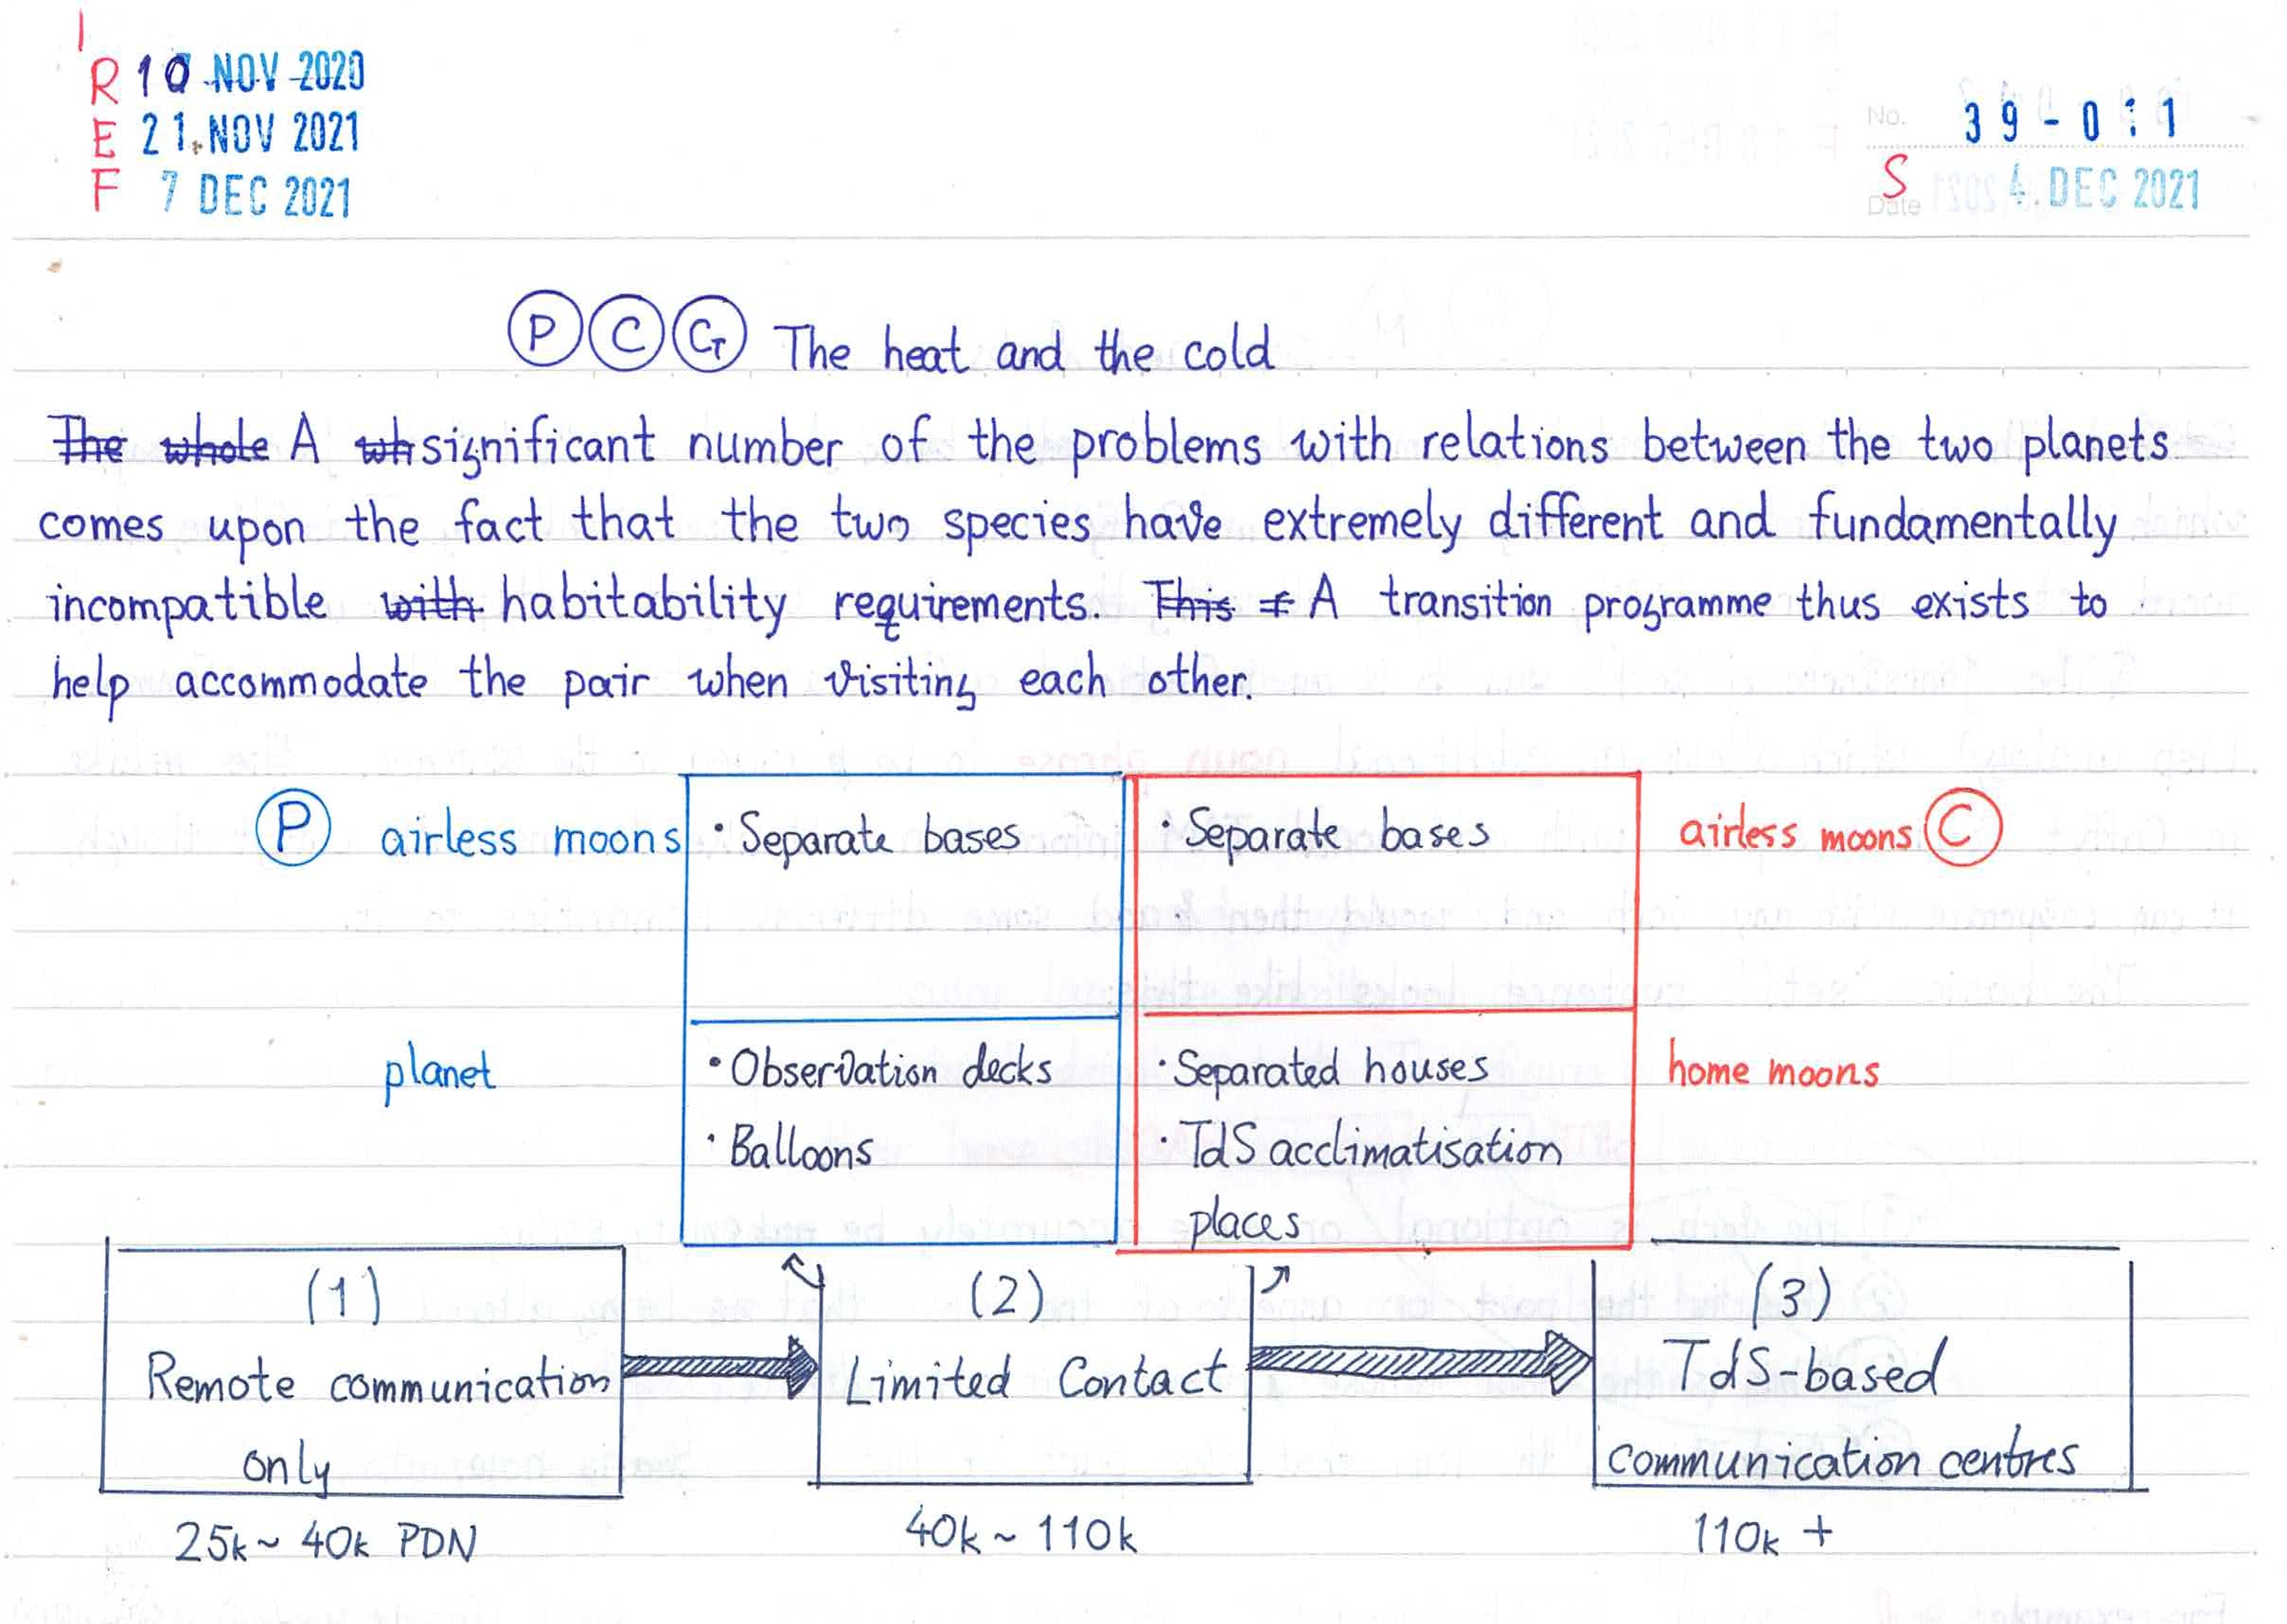 I
R 10 NOV 2020
E 21 NOV 2021
F 7 DEC 2021
No. 39-011
S 4 DEC 2021
Date
P C G The heat and the cold
The whole A wh significant number of the problems with relations between the two planets
comes upon the fact that the two species have extremely different and fundamentally
incompatible with habitability requirements. This f A transition programme thus exists to
help accommodate the pair when visiting each other.
P airless moons · Separate bases · Separate bases airless moons C
planet · Observation decks · Separated houses home moons
· Balloons · TdS acclimatisation
places
(1) (2) (3)
Remote communication Limited Contact TdS-based
only communication centres
25k~ 40k PDN 40k ~ 110k 110k +